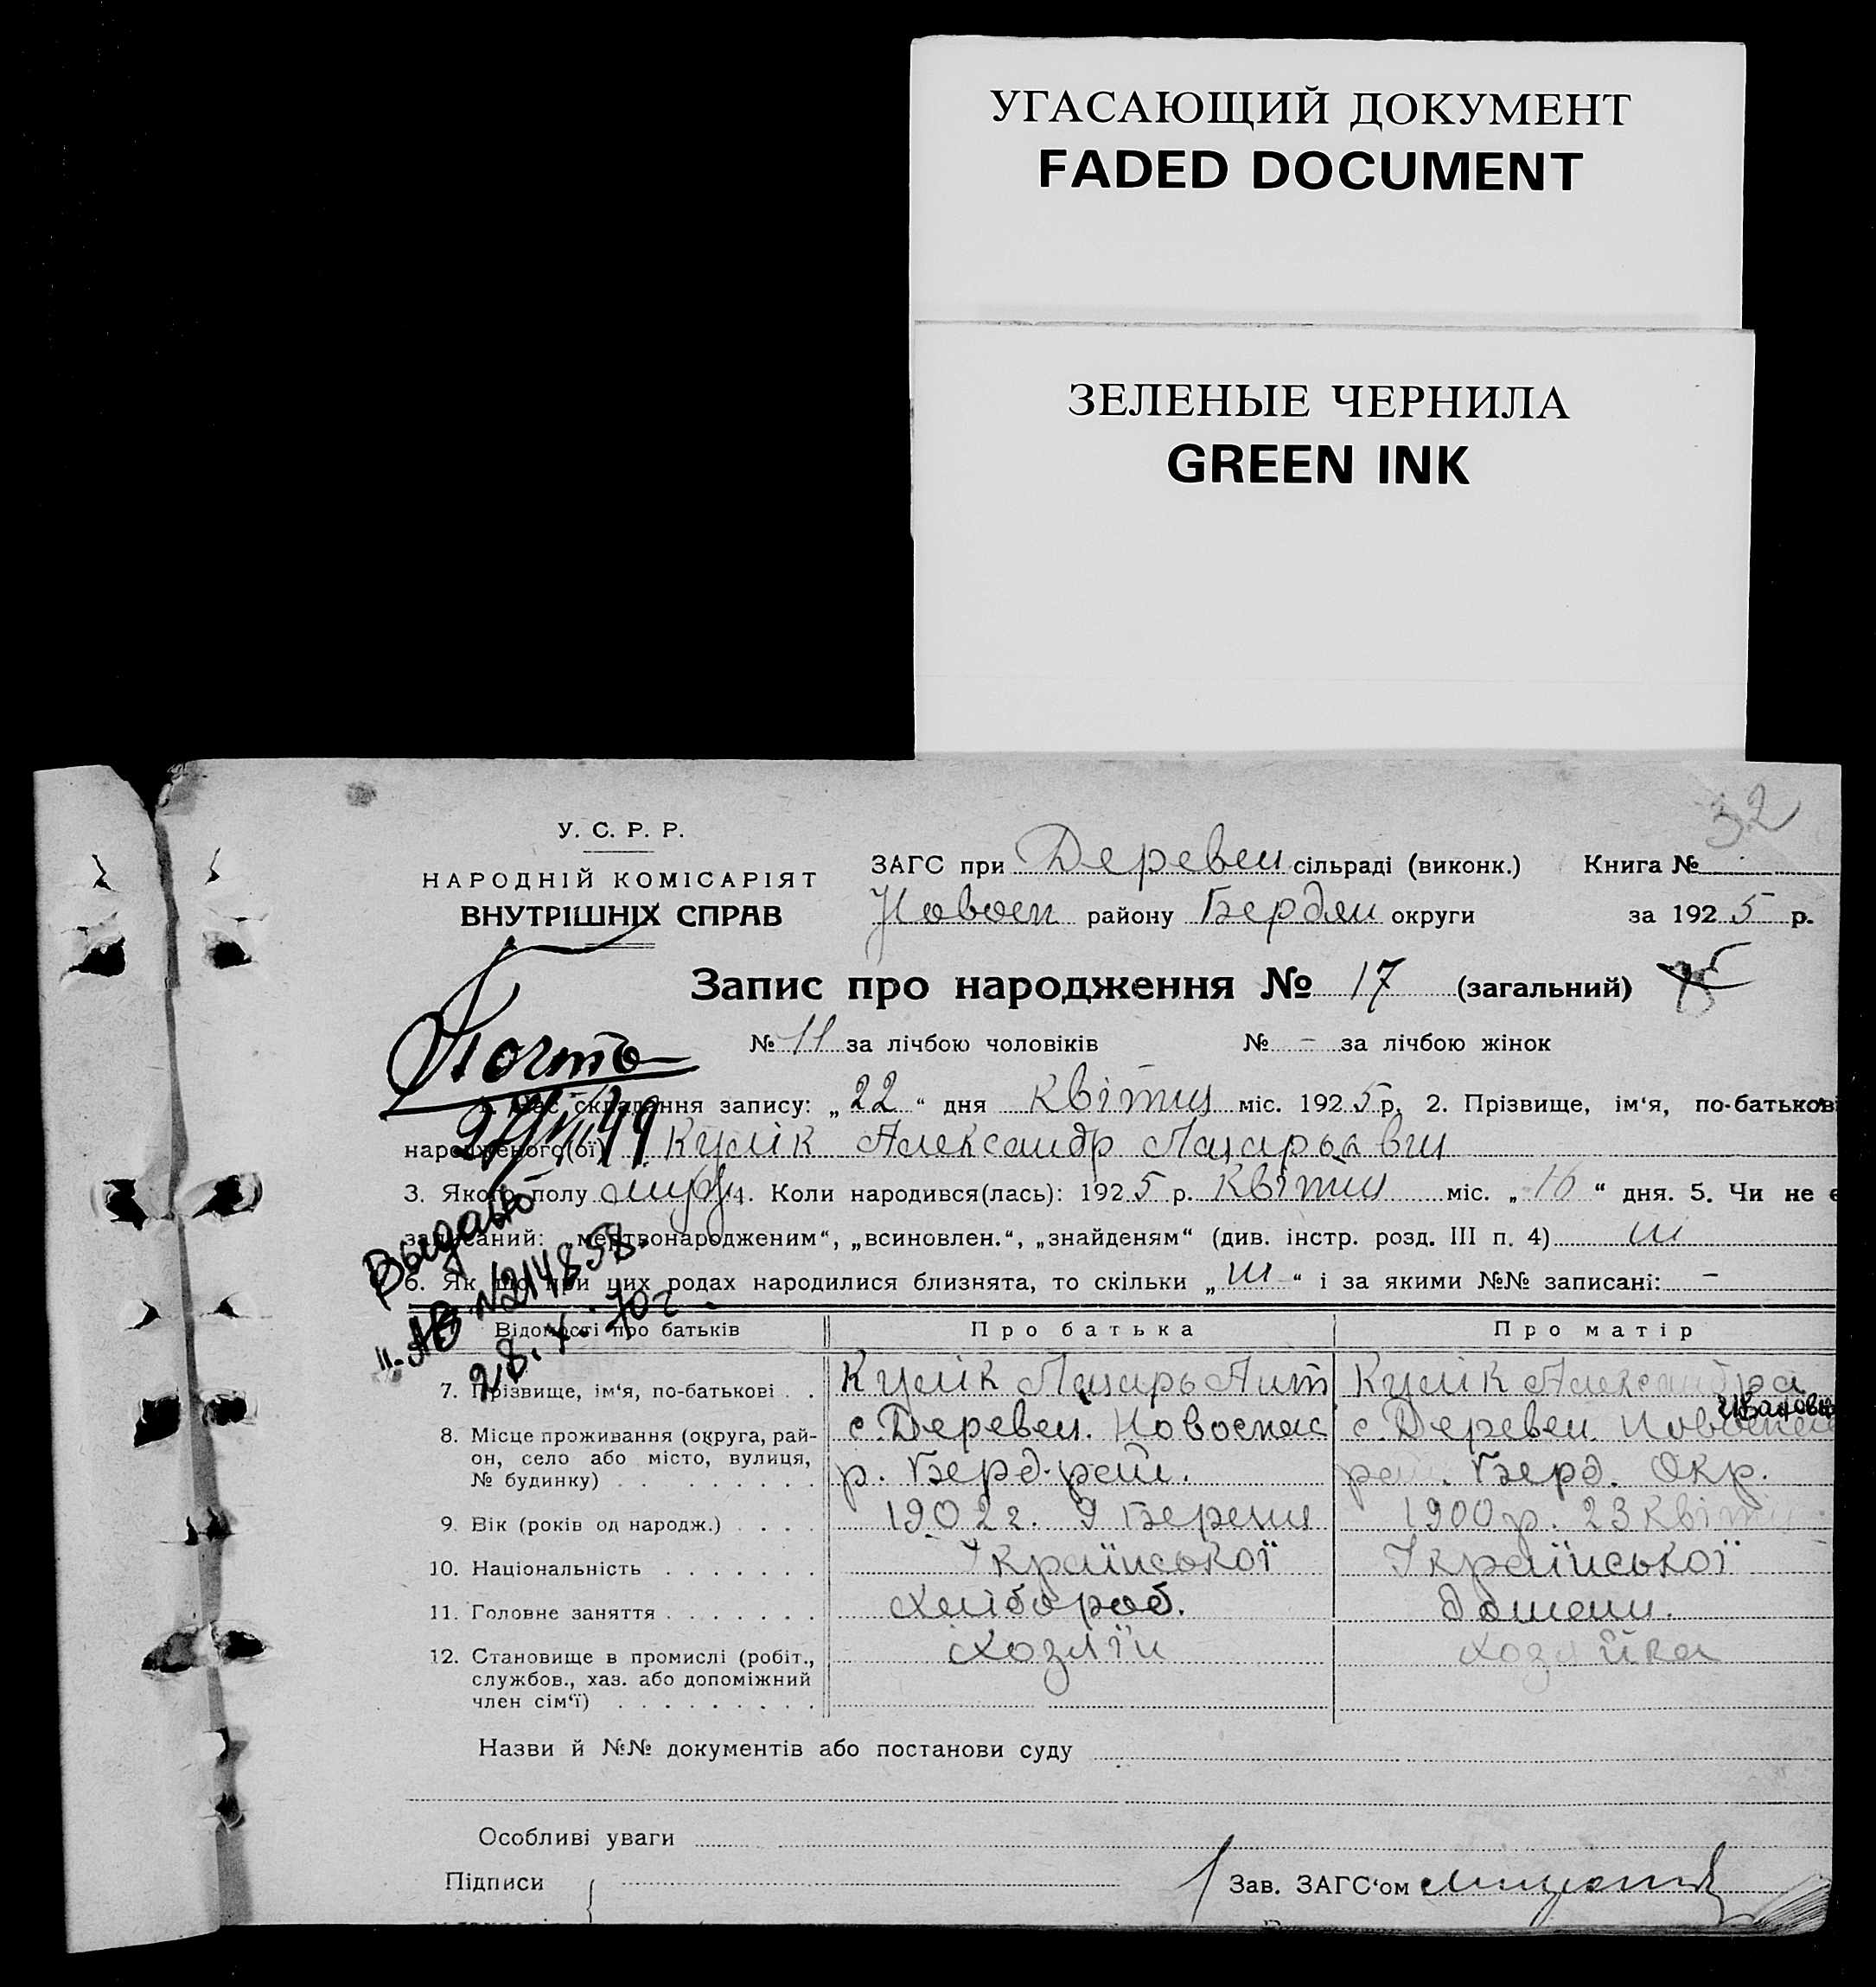 УГАСАЮЩИЙ ДОКУМЕНТ
FADED DOCUMENT
ЗЕЛЕНЫЕ ЧЕРНИЛА
GREEN INK
32
У. С. Р. Р.
НАРОДНІЙ КОМІСАРІЯТ
ВНУТРІШНІХ СПРАВ
ЗАГС при Деревен сільраді (виконк.) Книга №
Новосп району Бердян округи за 1925 р.
Запис про народження № 17 (загальний)
№ 11 за лічбою чоловіків № - за лічбою жінок
Почта
27/VII 49
1. Час складання запису: „22“ дня Квітня міс. 1925 р. 2. Прізвище, ім'я, по-батькові
народженого(ої) Кулік Александр Лазарьвич
3. Якого полу 4. Коли народився(лась): 1925 р. Квітня міс. „16“ дня. 5. Чи не є
записаний: „мертвонародженим“, „всиновлен.“, „знайденям“ (див. інстр. розд. III п. 4) ні
6. Як що при цих родах народилися близнята, то скільки „ні“ і за якими №№ записані: -
Выдано
II-АВ №214858
28. X. 70г.
Відомості про батьків Про батька Про матір
7. Прізвище, ім'я, по-батькові . . Кулік Лазарь Ант Кулік Александра
Ивановн
8. Місце проживання (округа, рай- с. Деревен. Новоспас с. Деревен. Новоспас
он, село або місто, вулиця,
№ будинку) . . . . . . . . . р. Берд. рай. рай. Берд. Окр.
9. Вік (років од народж.) . . . . 1902г. 9 Березня 1900р. 23 Квітн
10. Національність . . . . . . . Української Української
11. Головне заняття . . . . . . . Хлібороб. домашн.
12. Становище в промислі (робіт., Хозяїн хозяйка
службов., хаз. або допоміжний
член сім'ї) . . . . . . . . .
Назви й №№ документів або постанови суду
Особливі уваги
Підписи Зав. ЗАГС'ом